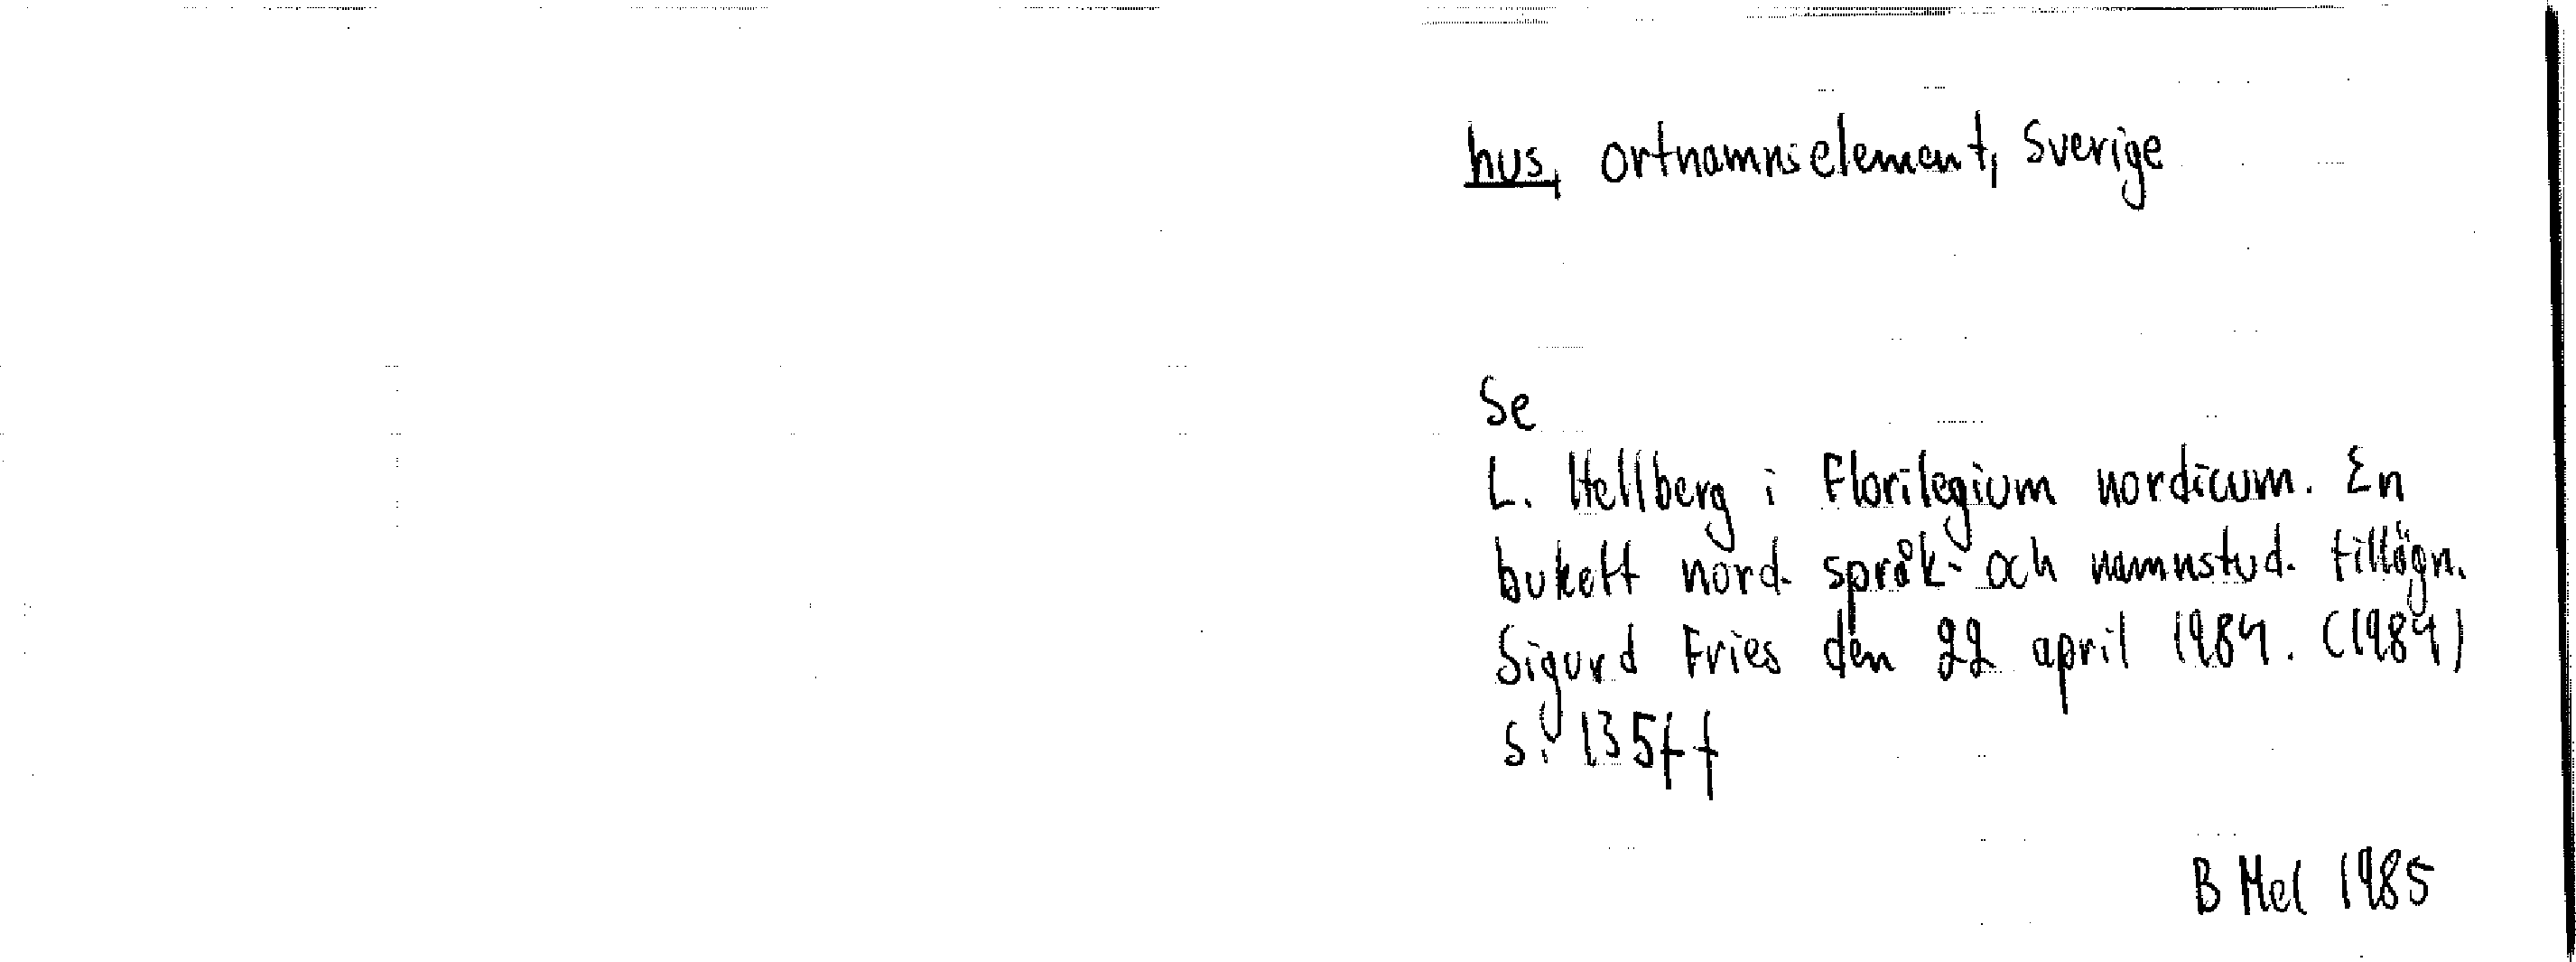 hus, ortnamnselement, Sverige
Se
L. Hellberg i Florilegium nordicum. En
bukett nord. språk- och namnstud. tillägn.
Sigurd Fries den 22 april 1984. (1984)
s. 135ff
B Mel 1985